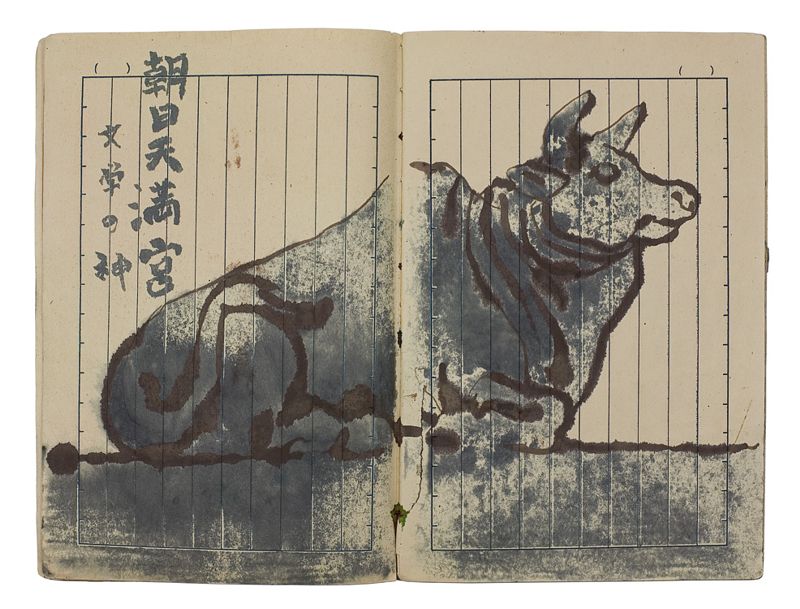 朝日天満宮
文学の神